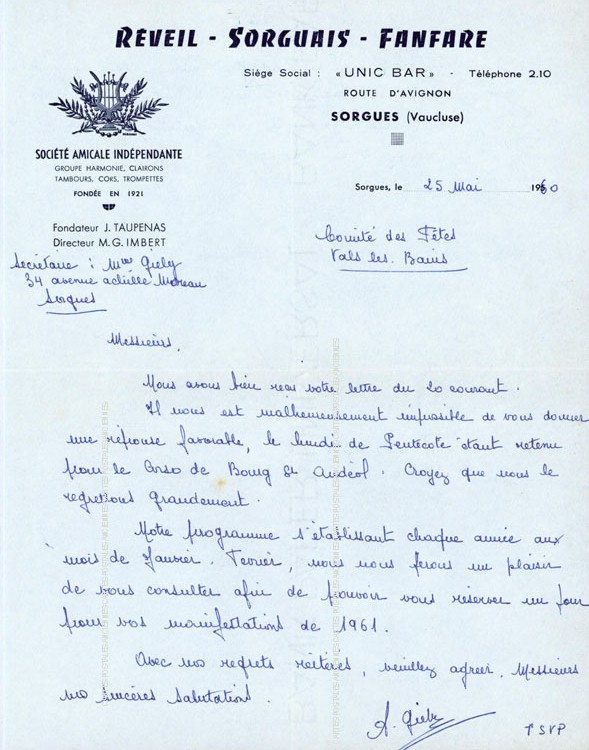 RÉVEIL - SORGUAIS - FANFARE
Siège Social : « UNIC BAR » - Téléphone 2.10
ROUTE D'AVIGNON
SORGUES (Vaucluse)
SOCIÉTÉ AMICALE INDÉPENDANTE
GROUPE HARMONIE, CLAIRONS
TAMBOURS, CORS, TROMPETTES
FONDÉE EN 1921
Fondateur J. TAUPENAS
Directeur M. G. IMBERT
Sorgues, le 25 Mai 1960
Secrétaire : Mme Giely
34 avenue achille Mareau
Sorgues
Comité des Fêtes
Vals les Bains
Messieurs,
Nous avons bien reçu votre lettre du 20 courant.
Il nous est malheureusement impossible de vous donner
une réponse favorable, le lundi de Pentecôte étant retenu
pour le Corso de Bourg St Andéol. Croyez que nous le
regrettons grandement.
Notre programme s'établissant chaque année aux
mois de Janvier. Février, nous nous ferons un plaisir
de vous consulter afin de pouvoir vous réserver un jour
pour vos manifestations de 1961.
Avec nos regrets réitérés, veuillez agréer, Messieurs
nos sincères salutations.
A. Giely
TSVP